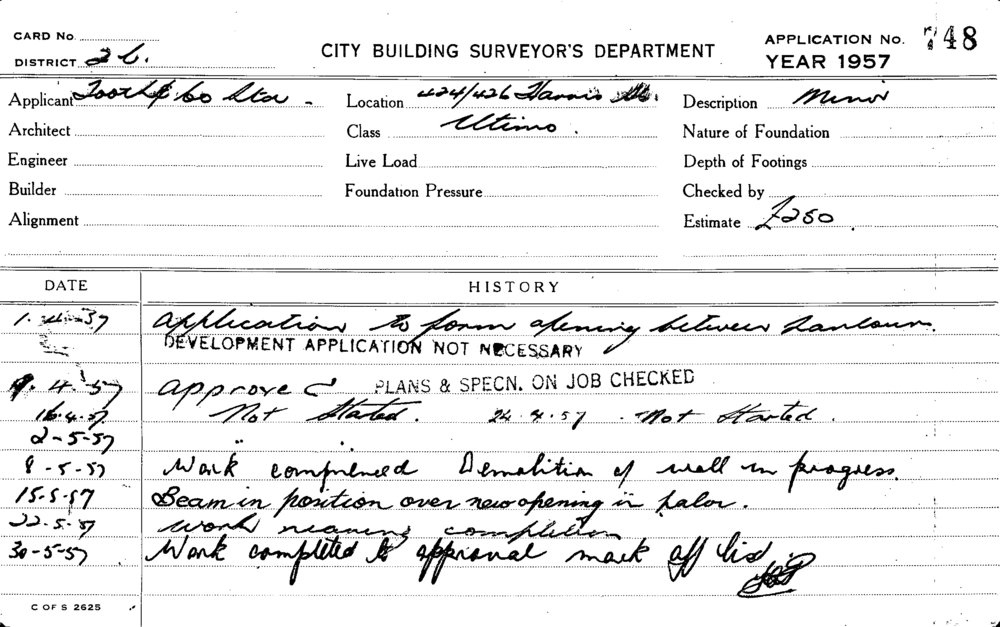 CARD No.
DISTRICT 2b.
CITY BUILDING SURVEYOR'S DEPARTMENT
APPLICATION No. 748
YEAR 1957
Applicant Tooth & Co Ltd -
Location 424/426 Harris St.
Description Minor
Architect
Class Ultimo.
Nature of Foundation
Engineer
Live Load
Depth of Footings
Builder
Foundation Pressure
Checked by
Alignment
Estimate £250.
DATE
HISTORY
1. 4. 57 Application to form opening between
DEVELOPMENT APPLICATION NOT NECESSARY
9. 4. 57 Approved PLANS & SPECN. ON JOB CHECKED
16.4.57. Not Started. 24.4.57. Not Started.
2-5-57 " "
8-5-57 Work commenced Demolition of wall in progress.
15-5-57 Beam in position over new opening in palor.
22-5-57 Work nearing completion
30-5-57 Work completed to approval mark off list
C OF S 2625